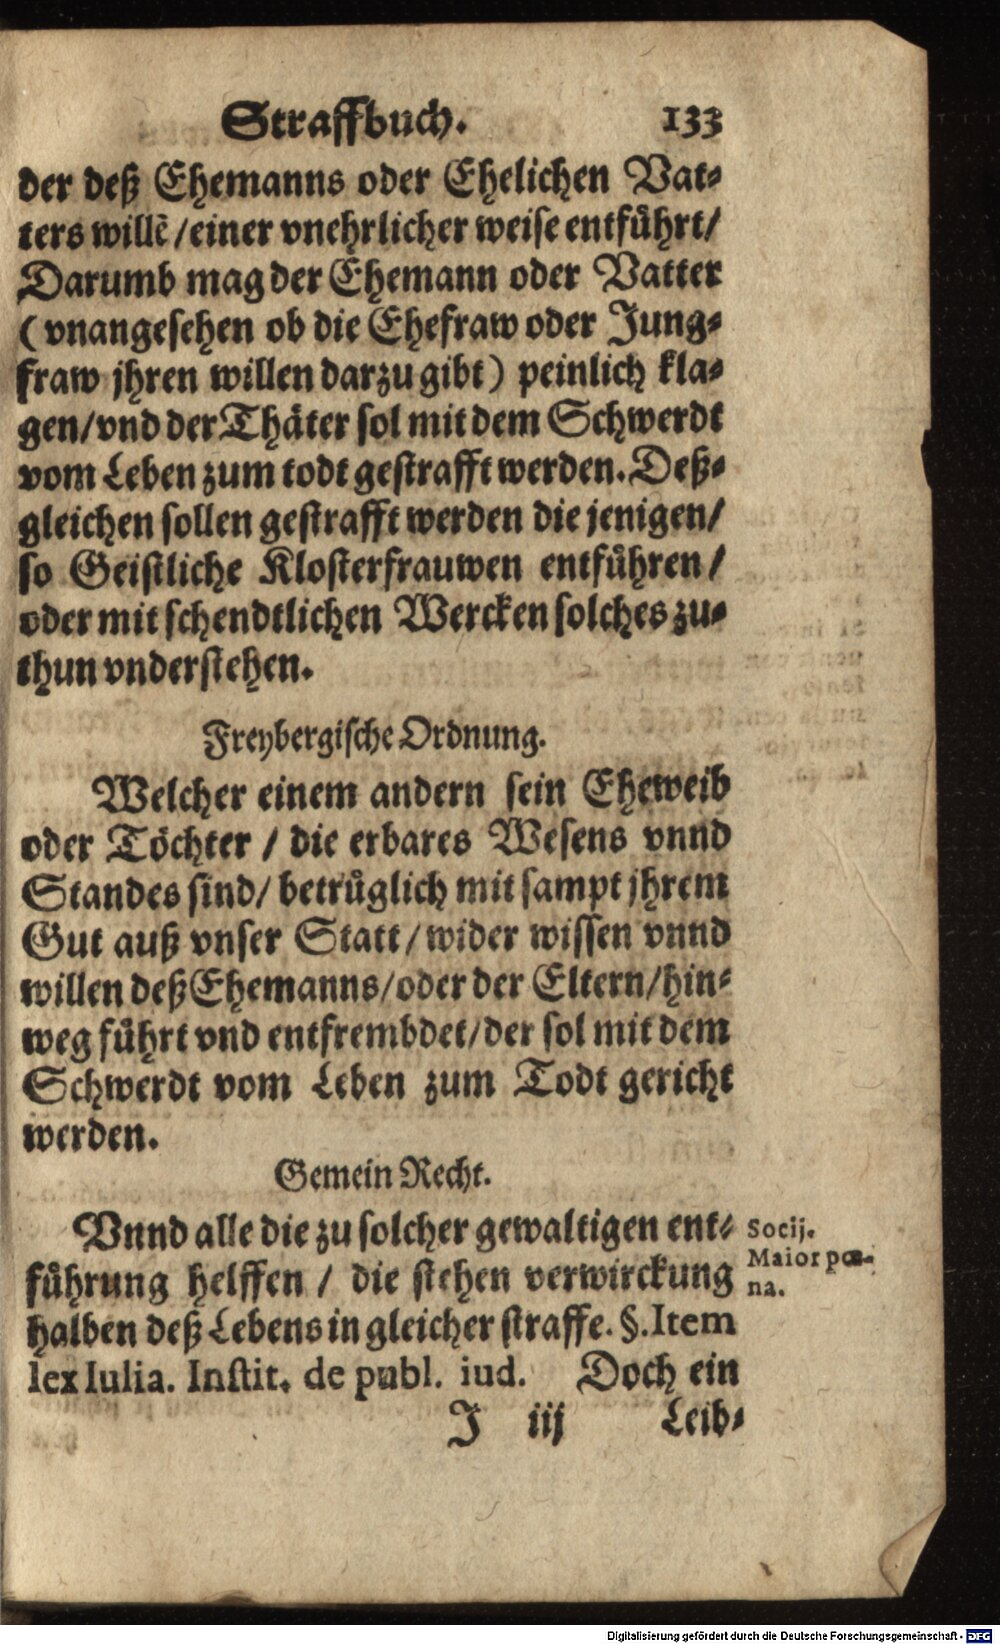 Straffbuch. 133
der deß Ehemanns oder Ehelichen Vat-
ters willē/einer vnehrlicher weise entfuͤhrt/
Darumb mag der Ehemann oder Vatter
(vnangesehen ob die Ehefraw oder Jung-
fraw jhren willen darzu gibt) peinlich kla-
gen/vnd der Thaͤter sol mit dem Schwerdt
vom Leben zum todt gestrafft werden. Deß-
gleichen sollen gestrafft werden die jenigen/
so Geistliche Klosterfrauwen entfuͤhren/
oder mit schendtlichen Wercken solches zu-
thun vnderstehen.
Freybergische Ordnung.
Welcher einem andern sein Eheweib
oder Toͤchter / die erbares Wesens vnnd
Standes sind/ betruͤglich mit sampt jhrem
Gut auß vnser Statt/wider wissen vnnd
willen deß Ehemanns/oder der Eltern/hin-
weg fuͤhrt vnd entfrembdet/der sol mit dem
Schwerdt vom Leben zum Todt gericht
werden.
Gemein Recht.
Vnnd alle die zu solcher gewaltigen ent-
fuͤhrung helffen / die stehen verwirckung
halben deß Lebens in gleicher straffe. §. Item
lex Iulia. Instit. de publ. iud. Doch ein
Socij.
Maior pœ-
na.
J iij Leib-
Digitalisierung gefördert durch die Deutsche Forschungsgemeinschaft - DFG